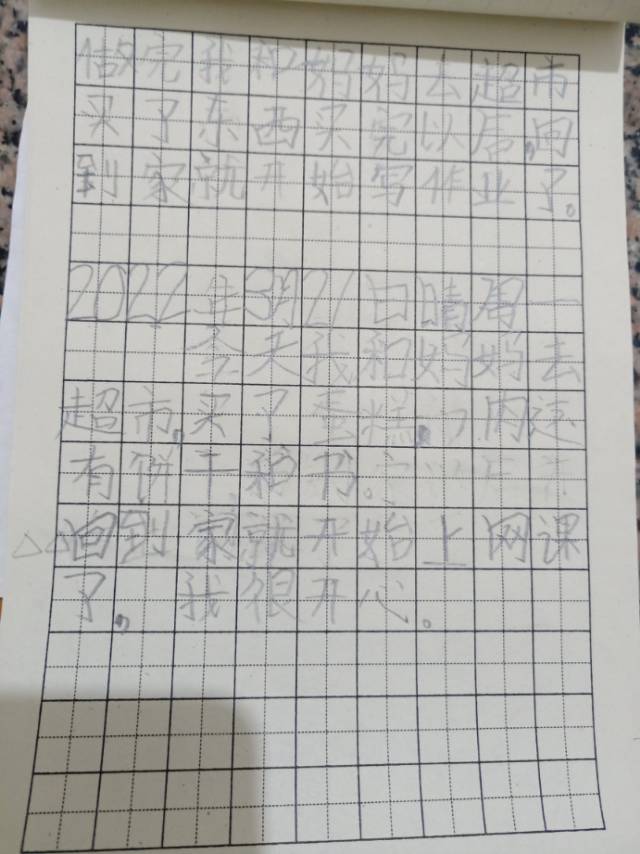 做完我和妈妈去超市
买了东西买完以后,回
到家就开始写作业了。
2022年3月21日晴周一
今天我和妈妈去
超市,买了蛋糕,
有饼干和书。
回到家就开始上网课
了,我很开心。